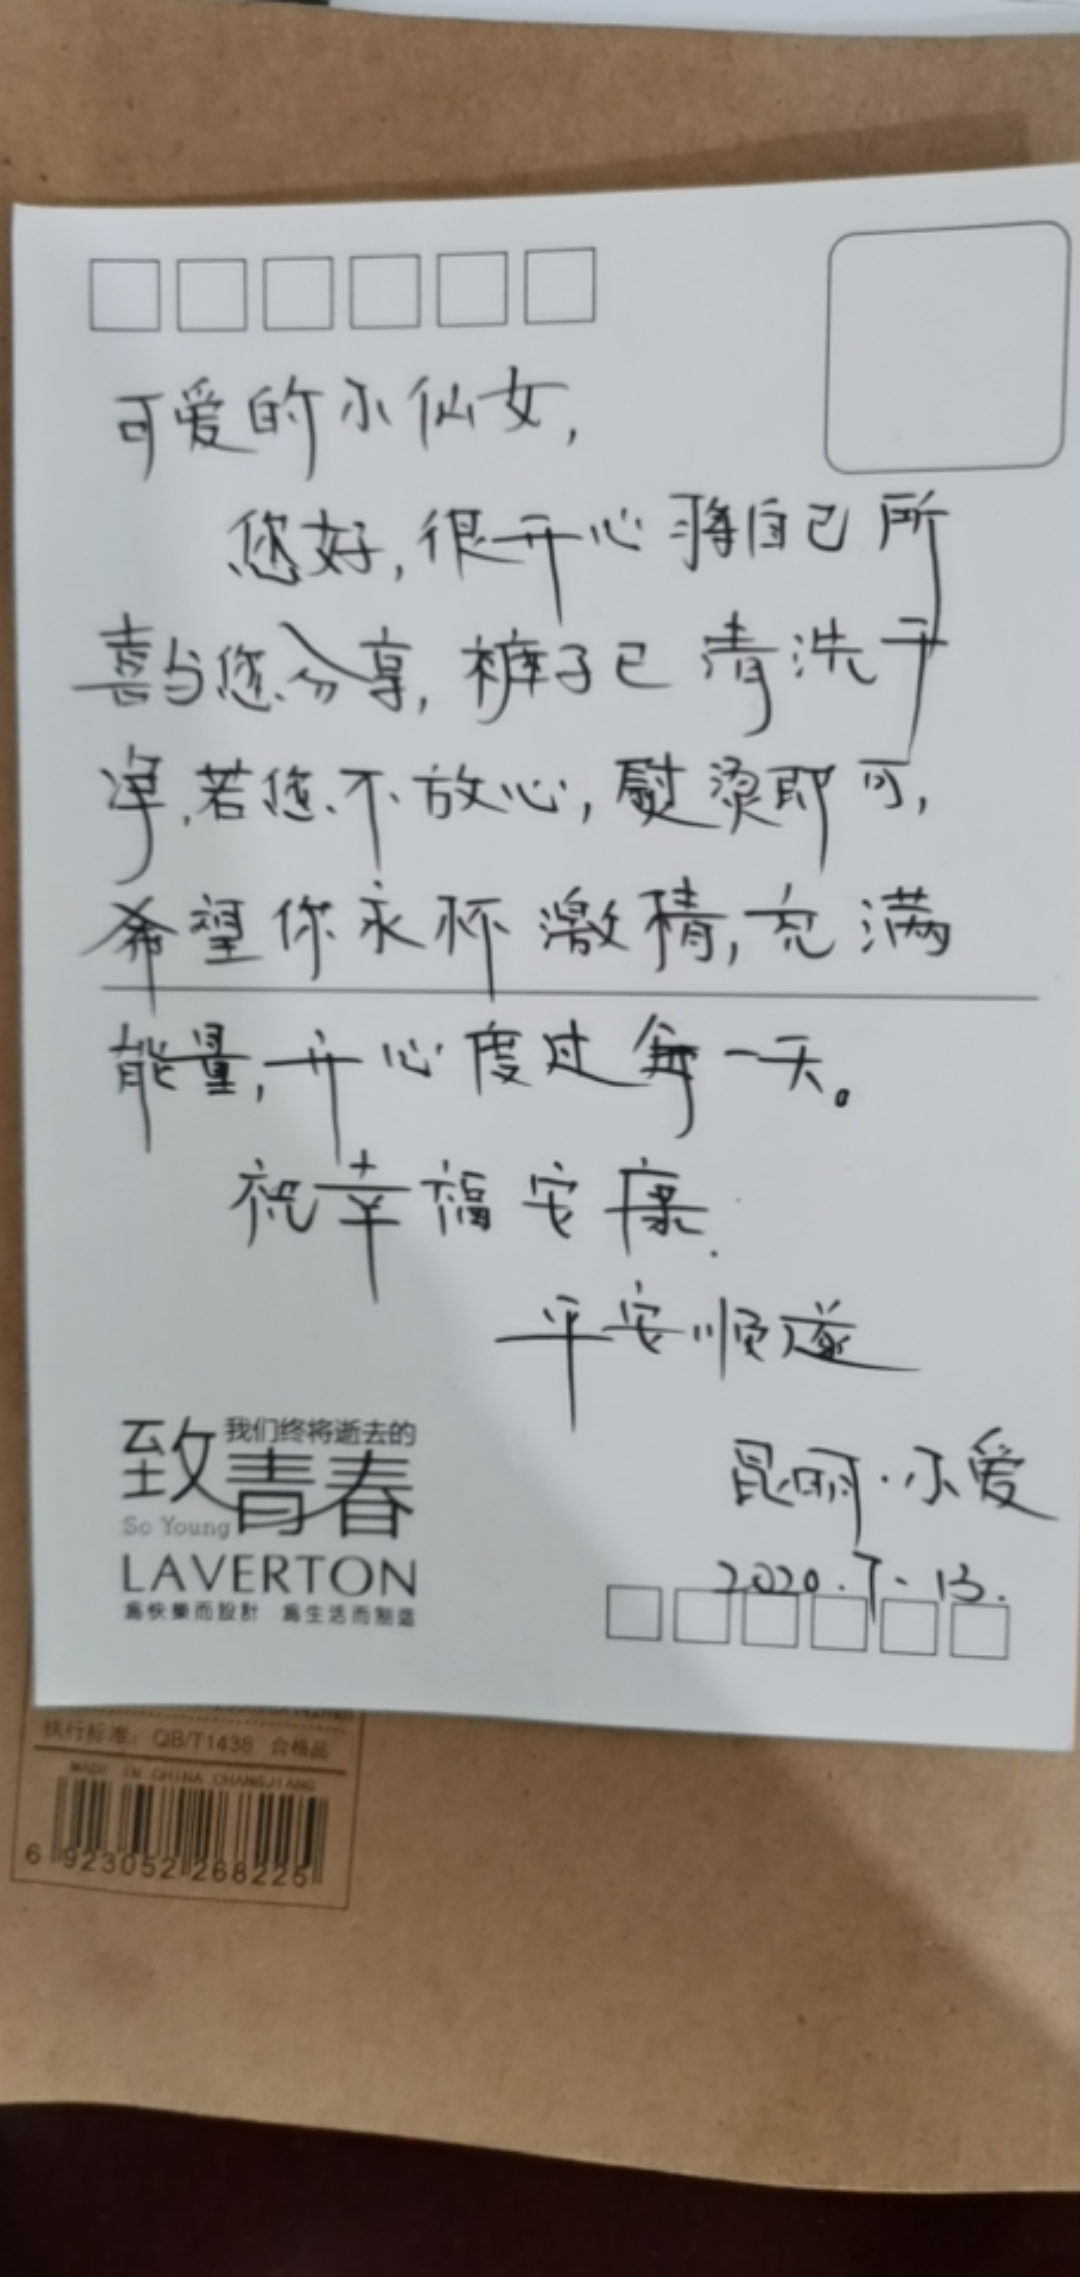 可爱的小仙女,
您好,很开心将自己所
喜与您分享,裤子已清洗干
净,若您不放心,熨烫即可,
希望你永怀激情,充满
能量,开心度过每一天。
祝幸福安康.
平安顺遂
昆丽·小爱
2020.7.13.
我们终将逝去的
致青春
So Young
LAVERTON
為快樂而設計 為生活而制造
执行标准：QB/T1438 合格品
MADE IN CHINA CHANGJIANG
6 923052 268225